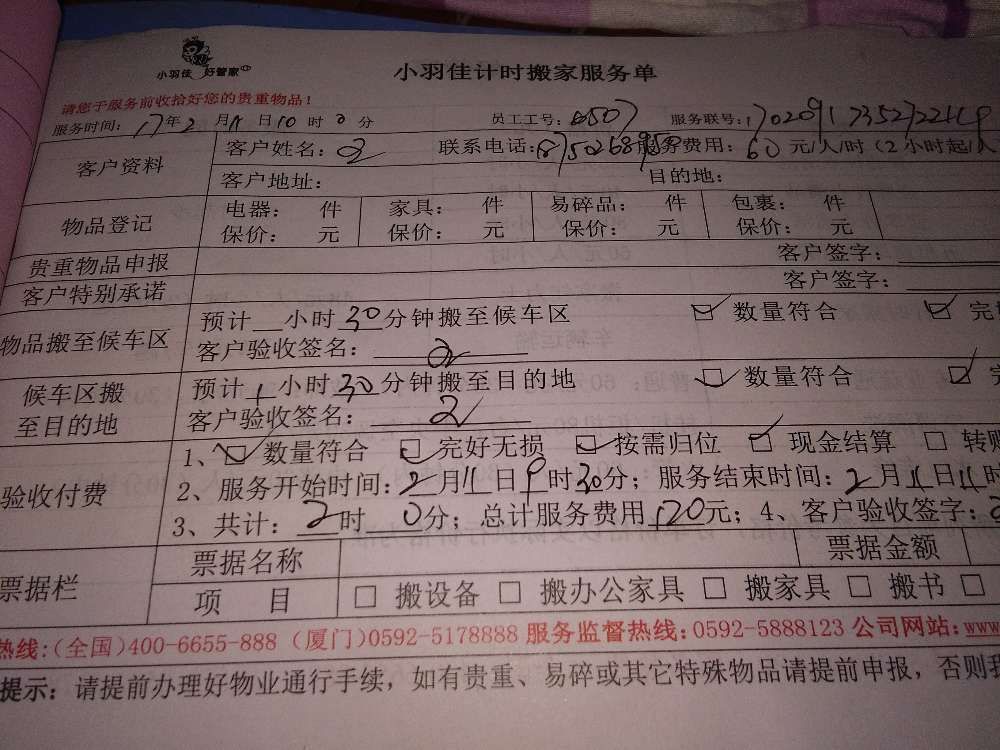 小羽佳 好管家
小羽佳计时搬家服务单
请您于服务前收拾好您的贵重物品！
服务时间：17年2月11日10时0分 员工工号：0507 服务联号：
客户资料 客户姓名： 联系电话： 服务费用：60元/人/时（2小时起/人
客户地址： 目的地：
物品登记 电器： 件 家具： 件 易碎品： 件 包裹： 件
保价： 元 保价： 元 保价： 元 保价： 元
贵重物品申报 客户签字：
客户特别承诺 客户签字：
物品搬至候车区 预计__小时30分钟搬至候车区 ☑ 数量符合 ☑ 完
客户验收签名：
候车区搬至目的地 预计1小时30分钟搬至目的地 ☑ 数量符合 ☑ 完
客户验收签名：
验收付费 1、☑ 数量符合 ☑ 完好无损 ☑ 按需归位 ☑ 现金结算 □ 转账
2、服务开始时间：2月11日9时30分；服务结束时间：2月11日11时
3、共计：2时0分；总计服务费用120元；4、客户验收签字：
票据栏 票据名称 票据金额
项 目 □ 搬设备 □ 搬办公家具 □ 搬家具 □ 搬书 □
热线：(全国)400-6655-888 (厦门)0592-5178888 服务监督热线：0592-5888123 公司网站：www
提示：请提前办理好物业通行手续，如有贵重、易碎或其它特殊物品请提前申报，否则我